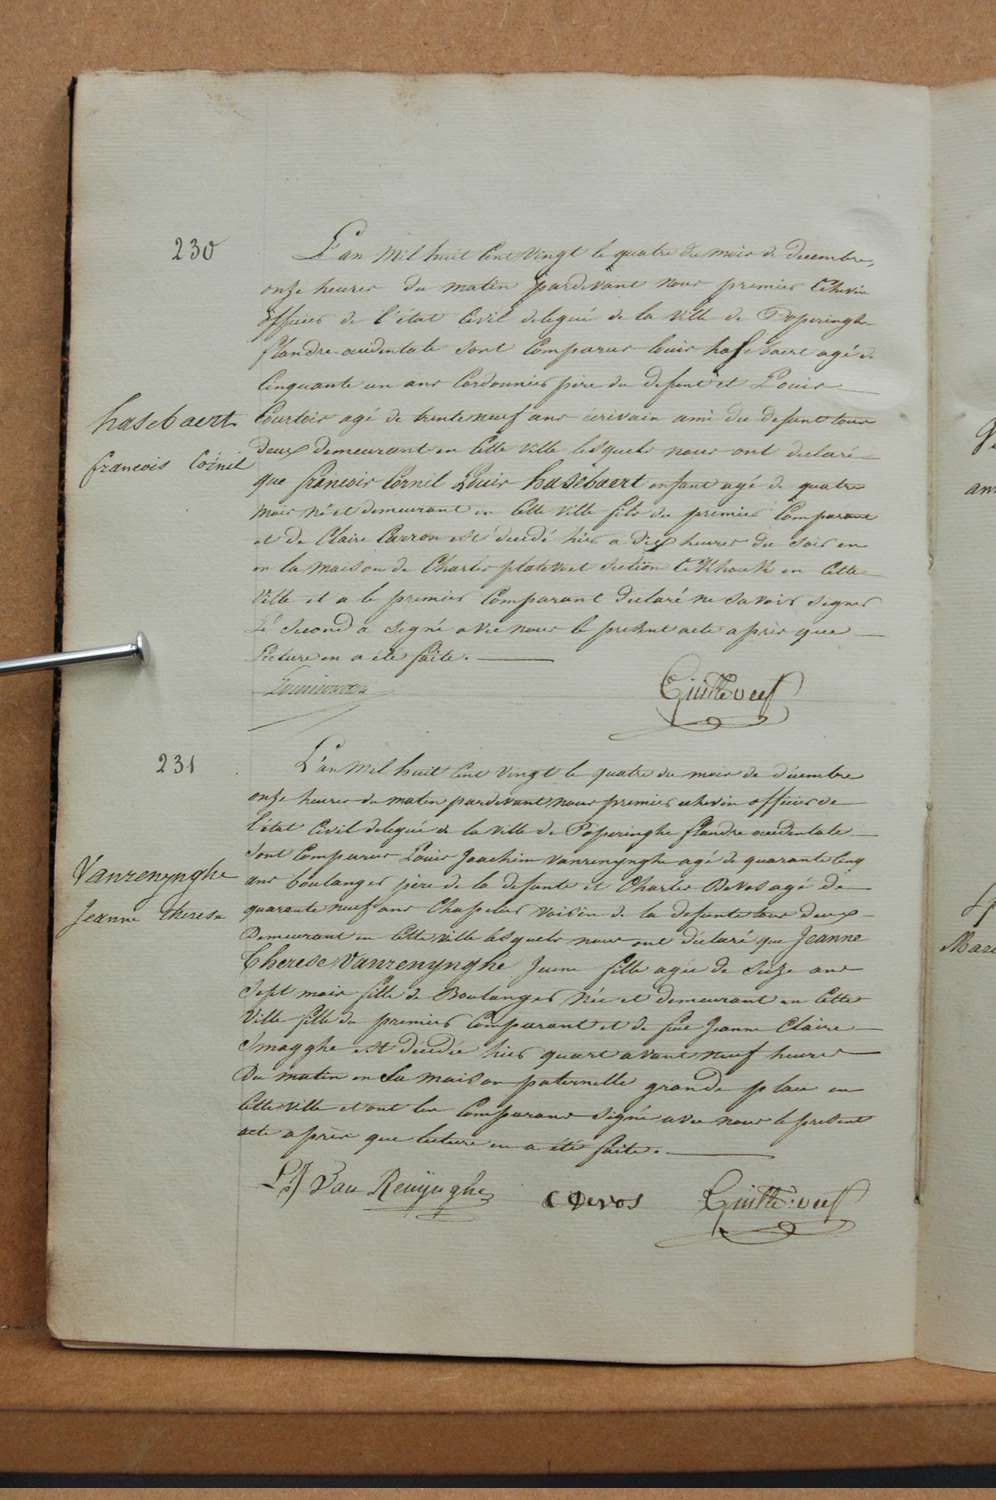 230
L'an Mil huit Cent Vingt le quatre du mois de decembre,
onze heures du matin pardevant nous premier Echevin
officier de l'état Civil delegué de la Ville de Poperinghe
flandre occidentale sont Comparus louis hasebaert agé de
Cinquante un ans Cordonnier père du defunt et Louis
hasebaert
Courtois agé de trente neuf ans écrivain ami du defunt tous
francois Cornil
deux demeurant en Cette Ville lesquels nous ont declaré
que francois Cornil Louis hasebaert enfant agé de quatre
mois né et demeurant en Cette Ville fils du premier Comparant
et de Claire Carron est decedé hier a dix heures du soir en
en la maison de Charles section en Cette
Ville et a le premier Comparant declaré ne savoir signer
Le second a signé avec nous le present acte après que
Lecture en a été faite.
231
L'an Mil huit Cent Vingt le quatre du mois de décembre
onze heures du matin pardevant nous premier echevin officier de
l'état Civil delegué de la Ville de Poperinghe flandre occidentale
sont Comparus Louis Joachim Vanrenynghe agé de quarante Cinq
Vanrenynghe
ans boulanger père de la defunte et Charles Devos agé de
Jeanne therese
quarante neuf ans Chapelier Voisin de la defunte tous deux
Demeurant en Cette Ville lesquels nous ont déclaré que Jeanne
Therese Vanrenynghe Jeune fille agée de Seize ans
Sept mois fille de Boulanger Née et demeurant en Cette
Ville fille du premier Comparant et de feue Jeanne Claire
Smagghe est décedée hier quart avant neuf heures
Du matin en La maison paternelle grande place en
Cette Ville et ont les Comparans signé avec nous le present
acte après que lecture en a été faite.
LJ Van Renÿnghe C Devos